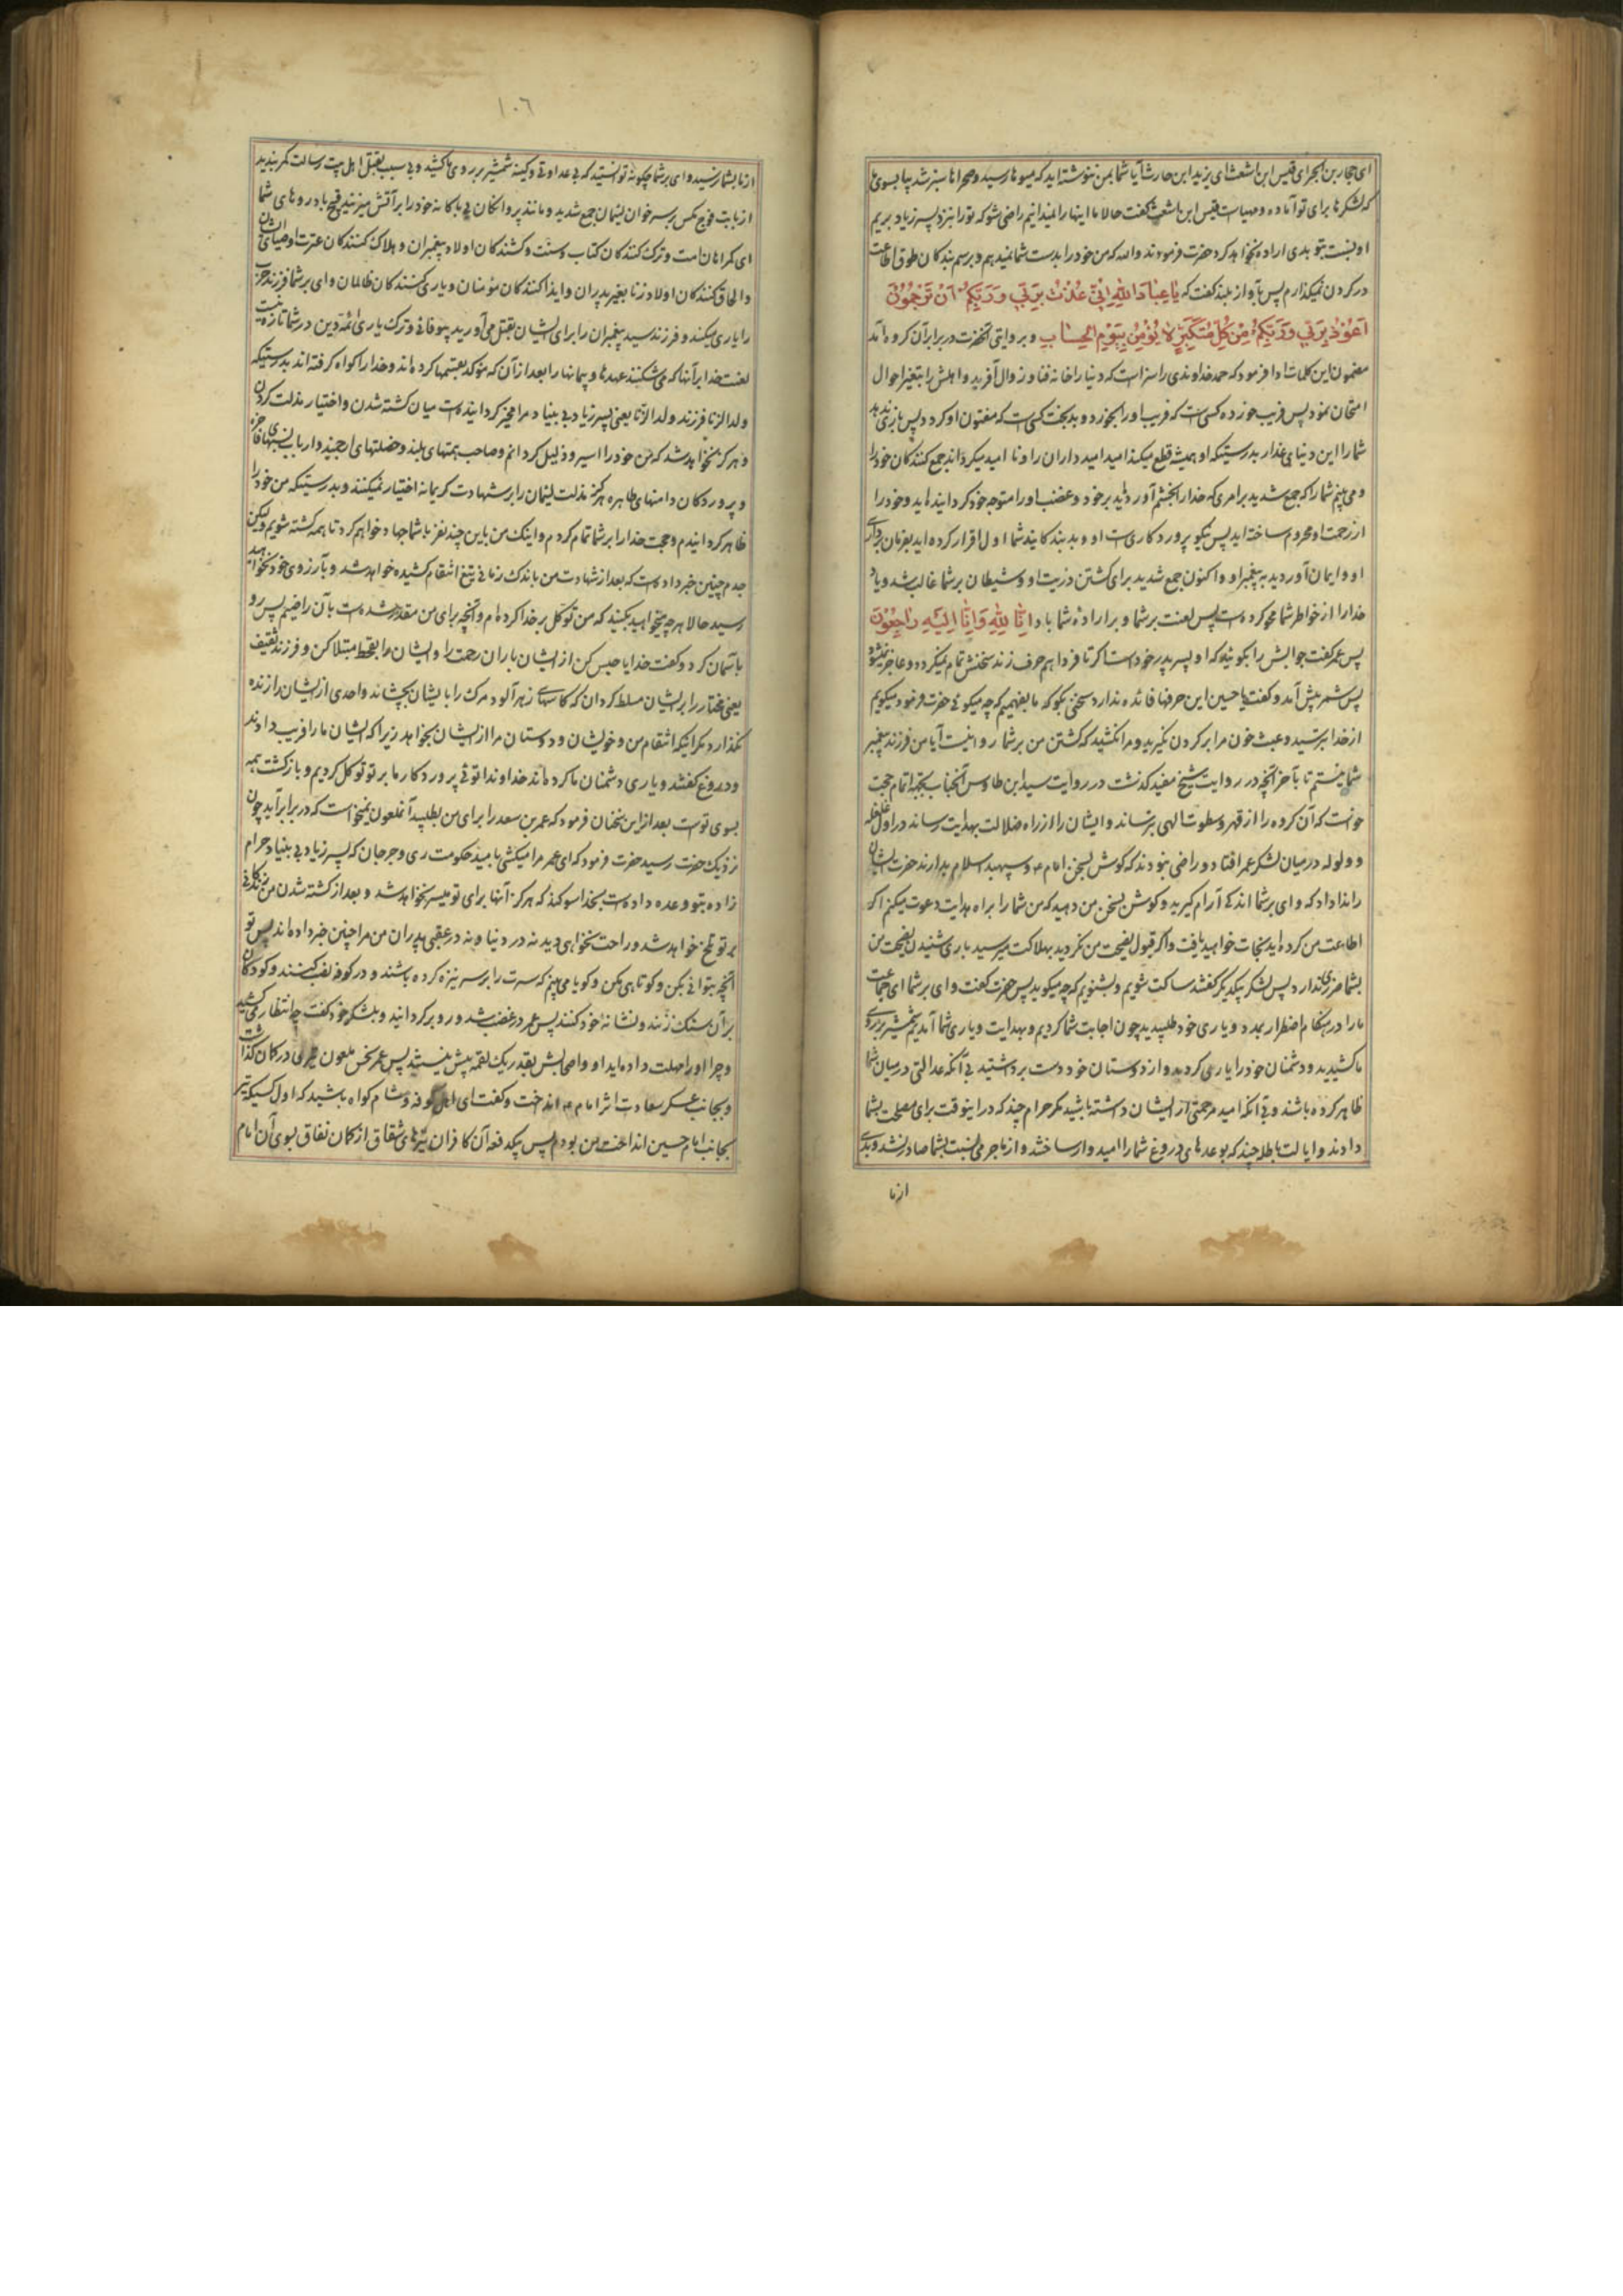 ای حجار بن ابجر ای قیس ابن اشعث ای یزید ابن حارث آیا شما بمن ننوشته اید که میوها رسید و صحراها سبز شد بیا بسوی ما
که لشکرها برای تو آماده و مهیاست قیس ابن اشعث گفت حالا ما اینها را نمیدانیم راضی شو که تو را بنزد پسر زیاد بریم
او نسبت بتو بدی اراده نخواهد کرد حضرت فرمودند والله که من خود را بدست شما نمیدهم و برسم بندکان طوق اطاعت
در کردن نمیکذارم پس بآواز بلند گفت که یَا عِبَادَ اللهِ اِنّی عُذْتُ بِرَبّی وَرَبِّکُمْ اَنْ تَرْجُمُونْ
اَعُوذُ بِرَبّی وَرَبِّکُمْ مِنْ کُلِّ مُتَکَبِّرٍ لَا یُؤْمِنُ بِیَوْمِ الْحِسَابِ و بروایتی آنحضرت در برابر آن کروه آمد
مضمون این کلمات ادا فرمود که حمد خداوندی را سزاست که دنیا را خانه فنا و زوال آفرید و اهلش را بتغیر احوال
امتحان نمود پس فریب خورده کسی است که فریب او را بخورد و بدبخت کسی است که مفتون او کردد پس بازی ندهد
شما را این دنیای غدار بدرستیکه او همیشه قطع میکند امید امیدواران را و نا امید میکرداند جمع کنندکان خود را
و می بینم شما را که جمع شدید بر امری که خدا را بخشم آورده اید بر خود و غضب او را متوجه خود کردانیده اید و خود را
از رحمت او محروم ساخته اید پس نیکو پروردکاری است او و بد بندکانید شما اول اقرار کرده اید بفرمان برداری
او و ایمان آوردید به پیغمبر او و اکنون جمع شدید برای کشتن ذریت او و شیطان بر شما غالب شد و یاد
خدا را از خواطر شما محو کرده است پس لعنت بر شما و بر اراده شما باد اِنَّا لِلّهِ وَاِنَّا اِلَیْهِ رَاجِعُونَ
پس عمر گفت جوابش را بکوئید که او پسر پدر خود است اکر تا فردا هم حرف زند سخنش تمام نمیکردد و عاجز نمیشود
پس شمر پیش آمد و گفت یا حسین این حرفها فائده ندارد سخنی بکو که ما بفهمیم که چه میکوئی حضرت فرمود میکویم
از خدا بترسید و عبث خون مرا بر کردن نکیرید و مرا نکشید که کشتن من بر شما روا نیست آیا من فرزند پیغمبر
شما نیستم تا بآخر آنچه در روایت شیخ مفید کذشت در روایت سید ابن طاوس آنجناب بجهة اتمام حجت
خواست که آن کروه را از قهر و سطوت الهی بترساند و ایشان را از راه ضلالت بهدایت رساند در اول غلغله
و ولوله در میان لشکر عمر افتاد و راضی نبودند که کوش بسخن امام و سپهبد اسلام بدارند حضرت ایشان
را ندا داد که وای بر شما اندکی آرام کیرید و کوش بسخن من دهید که من شما را براه هدایت دعوت میکنم اکر
اطاعت من کرده اید نجات خواهید یافت و اکر قبول نصیحت من نکردید بهلاکت میرسید باری شنیدن نصیحت من
بشما ضرری ندارد پس لشکر بیکدیکر گفتند ساکت شویم و بشنویم که چه میکوید پس حضرت گفت وای بر شما ای جماعت
ما را در هنکام اضطرار بمدد و یاری خود طلبیدید چون اجابت شما کردیم و بهدایت و یاری شما آمدیم شمشیر بر روی
ما کشیدید و دشمنان خود را یاری کردید و از دوستان خود دست برداشتید بی آنکه عدالتی در میان شما
ظاهر کرده باشند و بی آنکه امید مرحمتی از ایشان داشته باشید مکر حرام چند که در اینوقت برای مصلحت بشما
دادند و ایالت باطله چند که بوعدهای دروغ شما را امیدوار ساختند و از ما جرمی نسبت بشما صادر نشد و بدی
از ما
۱۰۶
از ما بشما نرسید وای بر شما چکونه توانستید که بی عداوتی و کینه شمشیر بر روی ما کشید و بی سبب بقتل اهل بیت رسالت کمر بندید
از بابت فوج مکس بر سر خوان لئیمان جمع شدید و مانند پروانکان بی باکانه خود را بر آتش میزنید قبیح باد روهای شما
ای کمراهان امت و ترک کنندکان کتاب و سنت و کشندکان اولاد پیغمبران و هلاک کنندکان عترت اوصیای ایشان
و الحاق کنندکان اولاد زنا بغیر پدران و ایذا کنندکان مؤمنان و یاری کنندکان ظالمان وای بر شما فرزند حرب
را یاری میکنید و فرزند سید پیغمبران را برای ایشان بقتل می آورید بیوفائی و ترک یاری ائمه دین در شما تازه نیست
لعنت خدا بر آنها که می شکنند عهدها و پیمانها را بعد از آن که مؤکد بقسمها کرده اند و خدا را کواه کرفته اند بدرستیکه
ولد الزنا فرزند ولد الزنا یعنی پسر زیاد بی بنیاد مرا مخیر کردانیده است میان کشته شدن و اختیار مذلت کردن
و هرکز نخواهد شد که من خود را اسیر و ذلیل کردانم و صاحب همتهای بلند و خصلتهای ارجمند و ارباب نسبهای فاخره
و پروردکان دامنهای طاهره هرکز مذلت لئیمان را بر شهادت کریمانه اختیار نمیکنند و بدرستیکه من خود را
ظاهر کردانیدم و حجت خدا را بر شما تمام کردم و اینک من باین چند نفر با شما جهاد خواهم کرد تا همه کشته شویم و لیکن
جدم چنین خبر داده است که بعد از شهادت من باندک زمانی تیغ انتقام کشیده خواهد شد و بآرزوی خود نخواهید
رسید حالا هر چه میخواهید بکنید که من توکل بر خدا کرده ام و آنچه برای من مقدر شده است بآن راضیم پس رو
باآسمان کرد و گفت خدایا حبس کن از ایشان باران رحمت را و ایشان را بقحط مبتلا کن و فرزند ثقیف
یعنی مختار را بر ایشان مسلط کردان که کاسهای زهرآلود مرک را بایشان بچشاند و احدی از ایشان را زنده
نکذارد مکر اینکه انتقام من و خویشان و دوستان مرا از ایشان بخواهد زیرا که ایشان ما را فریب دادند
و دروغ گفتند و یاری دشمنان ما کرده اند خداوندا توئی پروردکار ما بر تو توکل کردیم و بازکشت همه
بسوی تو است بعد از این سخنان فرمود که عمر بن سعد را برای من بطلبید آنملعون نمیخواست که در برابر آید چون
نزدیک حضرت رسید حضرت فرمود که ای عمر مرا میکشی بامید حکومت ری و جرجان که پسر زیاد بی بنیاد حرام
زاده بتو وعده داده است بخدا سوکند که هرکز آنها برای تو میسر نخواهد شد و بعد از کشته شدن من زندکانی
بر تو تلخ خواهد شد و راحت نخواهی دید نه در دنیا و نه در عقبی پدران من مرا چنین خبر داده اند پس تو
آنچه بتوانی بکن و کوتاهی مکن و کویا می بینم که سرت را بر سر نیزه کرده باشند و در کوفه نصب کنند و کودکان
بر آن سنک زنند و نشانه خود کنند پس عمر در غضب شد و رو برکردانید و بلشکر خود گفت چه انتظار می کشید
و چرا او را مهلت داده اید او و اصحابش بقدر یک لقمه بیش نیستند پس عمر نحس ملعون تیری در کمان گذاشت
و بجانب عسکر سعادت اثر امام انداخت و گفت ای اهل کوفه و شام کواه باشید که اول کسیکه تیر
بجانب امام حسین انداخت من بودم پس بیکدفعه آن کافران تیرهای شقاق از کمان نفاق بسوی آن امام